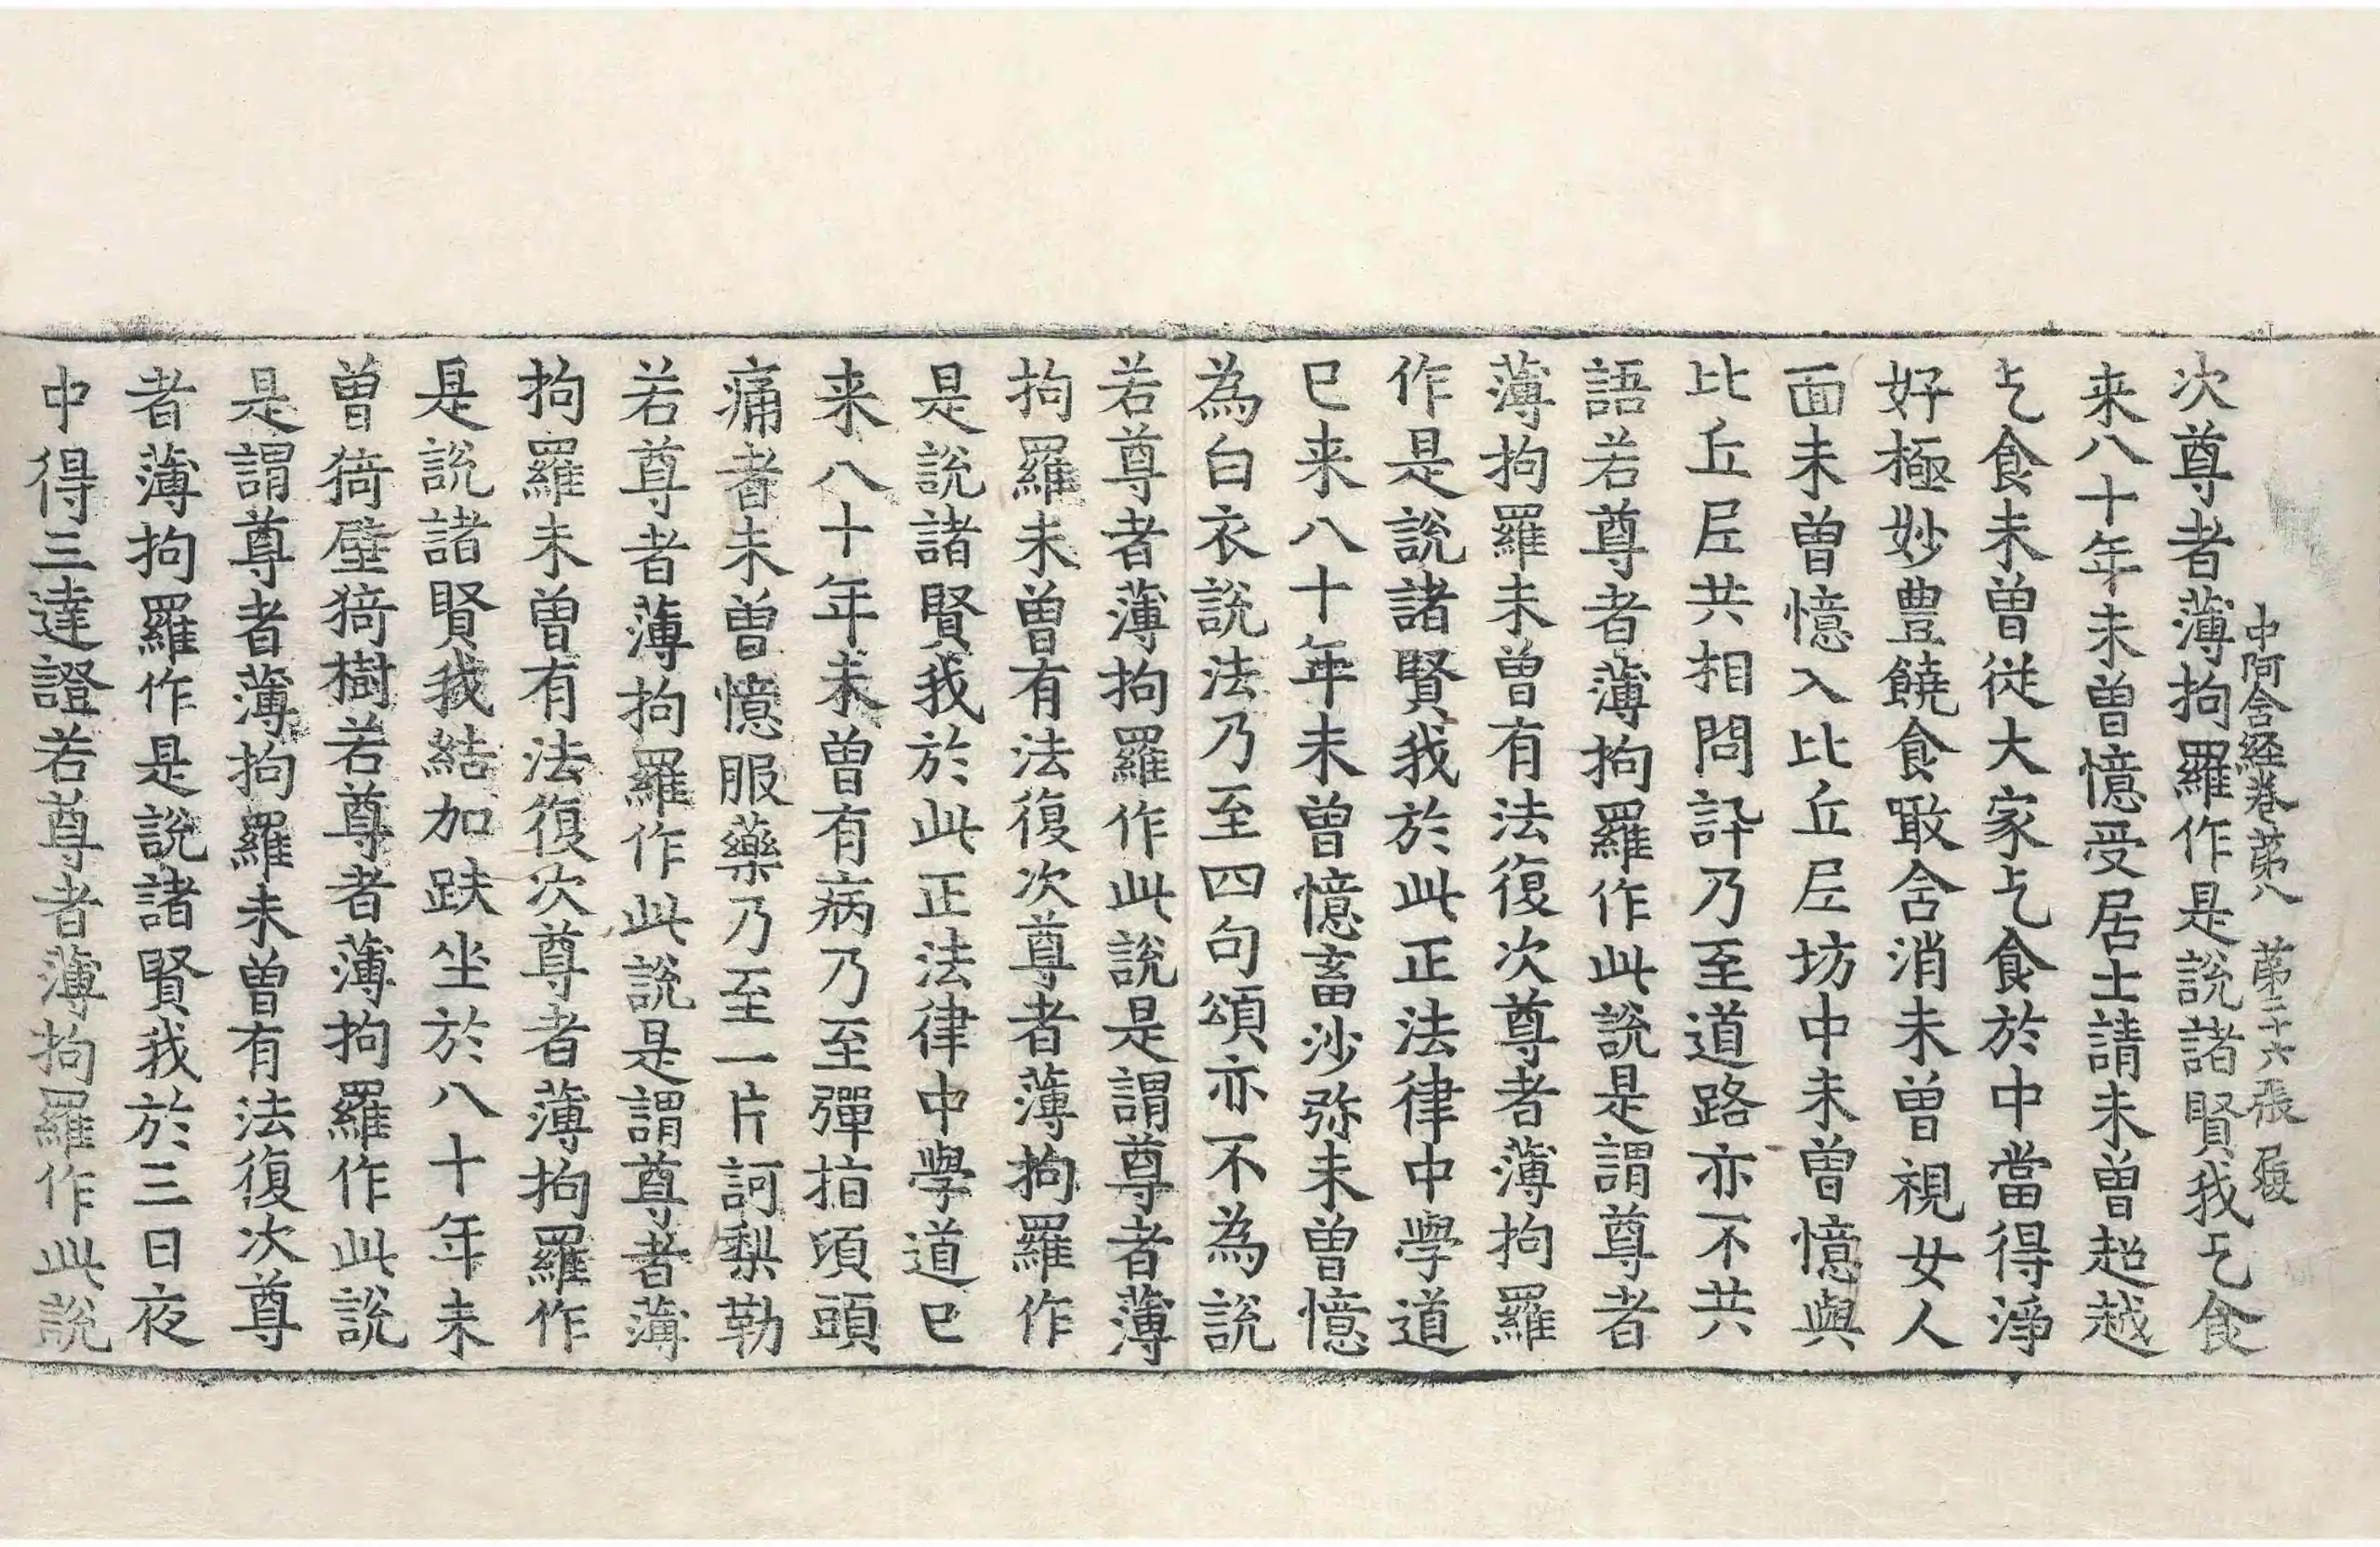 中阿含經卷第八　第二十六張　履
次尊者薄拘羅作是說諸賢我乞食
来八十年未曾憶受居士請未曾超越
乞食未曾從大家乞食於中當得淨
好極妙豊饒食噉含消未曾視女人
面未曾憶入比丘𡰱坊中未曾憶與
比丘𡰱共相問訊乃至道路亦不共
語若尊者薄拘羅作此說是謂尊者
薄拘羅未曾有法復次尊者薄拘羅
作是說諸賢我於此正法律中學道
已来八十年未曾憶畜沙弥未曾憶
為白衣說法乃至四句頌亦不為說
若尊者薄拘羅作此說是謂尊者薄
拘羅未曾有法復次尊者薄拘羅作
是說諸賢我於此正法律中學道已
来八十年未曾有病乃至彈指頃頭
痛者未曾憶服藥乃至一片訶梨勒
若尊者薄拘羅作此說是謂尊者薄
拘羅未曾有法復次尊者薄拘羅作
是說諸賢我結加趺坐於八十年未
曾猗壁猗樹若尊者薄拘羅作此說
是謂尊者薄拘羅未曾有法復次尊
者薄拘羅作是說諸賢我於三日夜
中得三達證若尊者薄拘羅作此說